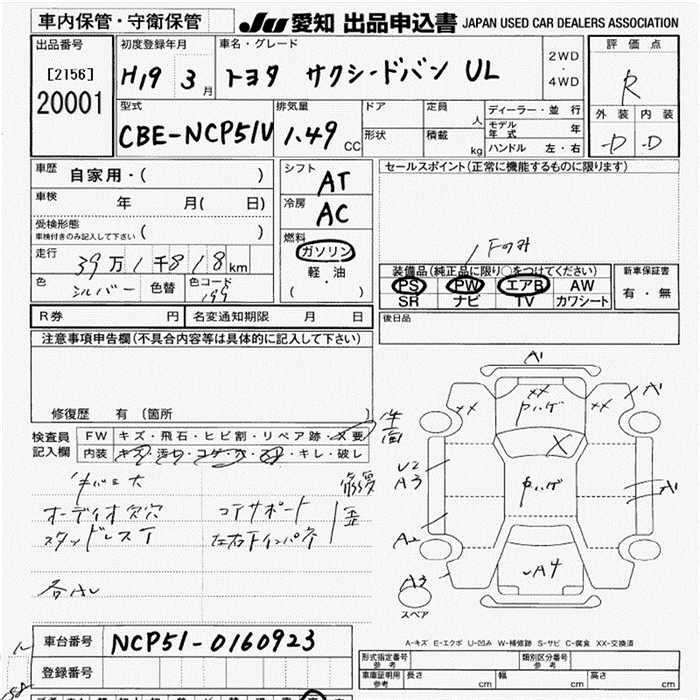 車内保管・守衛保管
JU 愛知 出品申込書 JAPAN USED CAR DEALERS ASSOCIATION
出品番号
[2156]
20001
初度登録年月
H19 3月
車名・グレード
トヨタ サクシードバン UL
2WD
・
4WD
評価点
R
外装 内装
D D
型式
CBE-NCP51V
排気量
1.49 CC
ドア
形状
定員 人
積載 kg
ディーラー・並行
モデル年式 年
ハンドル 左・右
車歴 自家用・( )
車検 年 月( 日)
受検形態
車検付きのみ記入して下さい ( )
走行 39万1千818km
色 シルバー 色替 色コード 199
シフト
AT
冷房
AC
燃料
ガソリン
軽・油
( )
セールスポイント(正常に機能するものに限ります)
装備品(純正品に限り○をつけてください)
PS PW エアB AW
SR ナビ TV カワシート
新車保証書
有・無
R券 円 名変通知期限 月 日
後日品
注意事項申告欄(不具合内容等は具体的に記入して下さい)
修復歴 有(箇所 )
検査員記入欄
FW キズ・飛石・ヒビ割・リペア跡・X要
内装 キズ・汚れ・コゲ・穴・スレ・キレ・破レ
オーディオ欠穴
コアサポート
スタッドレスT
左右Fインパネ
A
XX
XX
XX
A
X
U2
A3
A2
A4
A3
スペア
A-キズ E-エクボ U-凹み W-補修跡 S-サビ C-腐食 XX-交換済
車台番号 NCP51-0160923
登録番号
形式指定番号 参考
類別区分番号 参考
車庫証明用 参考 長さ cm 幅 cm 高さ cm